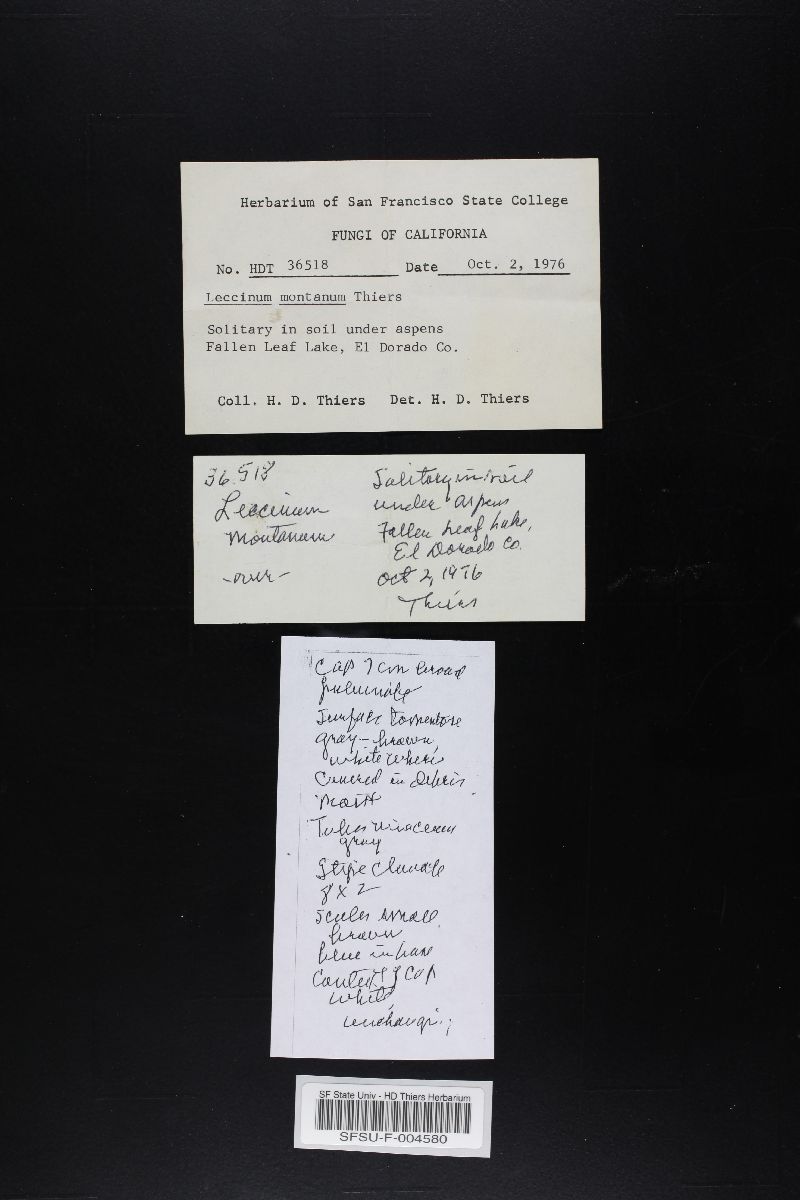 Herbarium of San Francisco State College
FUNGI OF CALIFORNIA
No. HDT 36518 Date Oct. 2, 1976
Leccinum montanum Thiers
Solitary in soil under aspens
Fallen Leaf Lake, El Dorado Co.
Coll. H. D. Thiers Det. H. D. Thiers
36518
Leccinum
montanum
-over-
Solitary in soil
under aspens
Fallen Leaf Lake,
El Dorado Co.
Oct 2, 1976
Thiers
Cap 7 cm broad
pulvinate
Surface tomentose
gray-brown,
white where
Covered in debris
moist
Tubes vinaceous
gray
Stipe clavate
8 x 2
Scales small
brown
blue in base
Context of Cap
white,
unchanging
SF State Univ - HD Thiers Herbarium
SFSU-F-004580